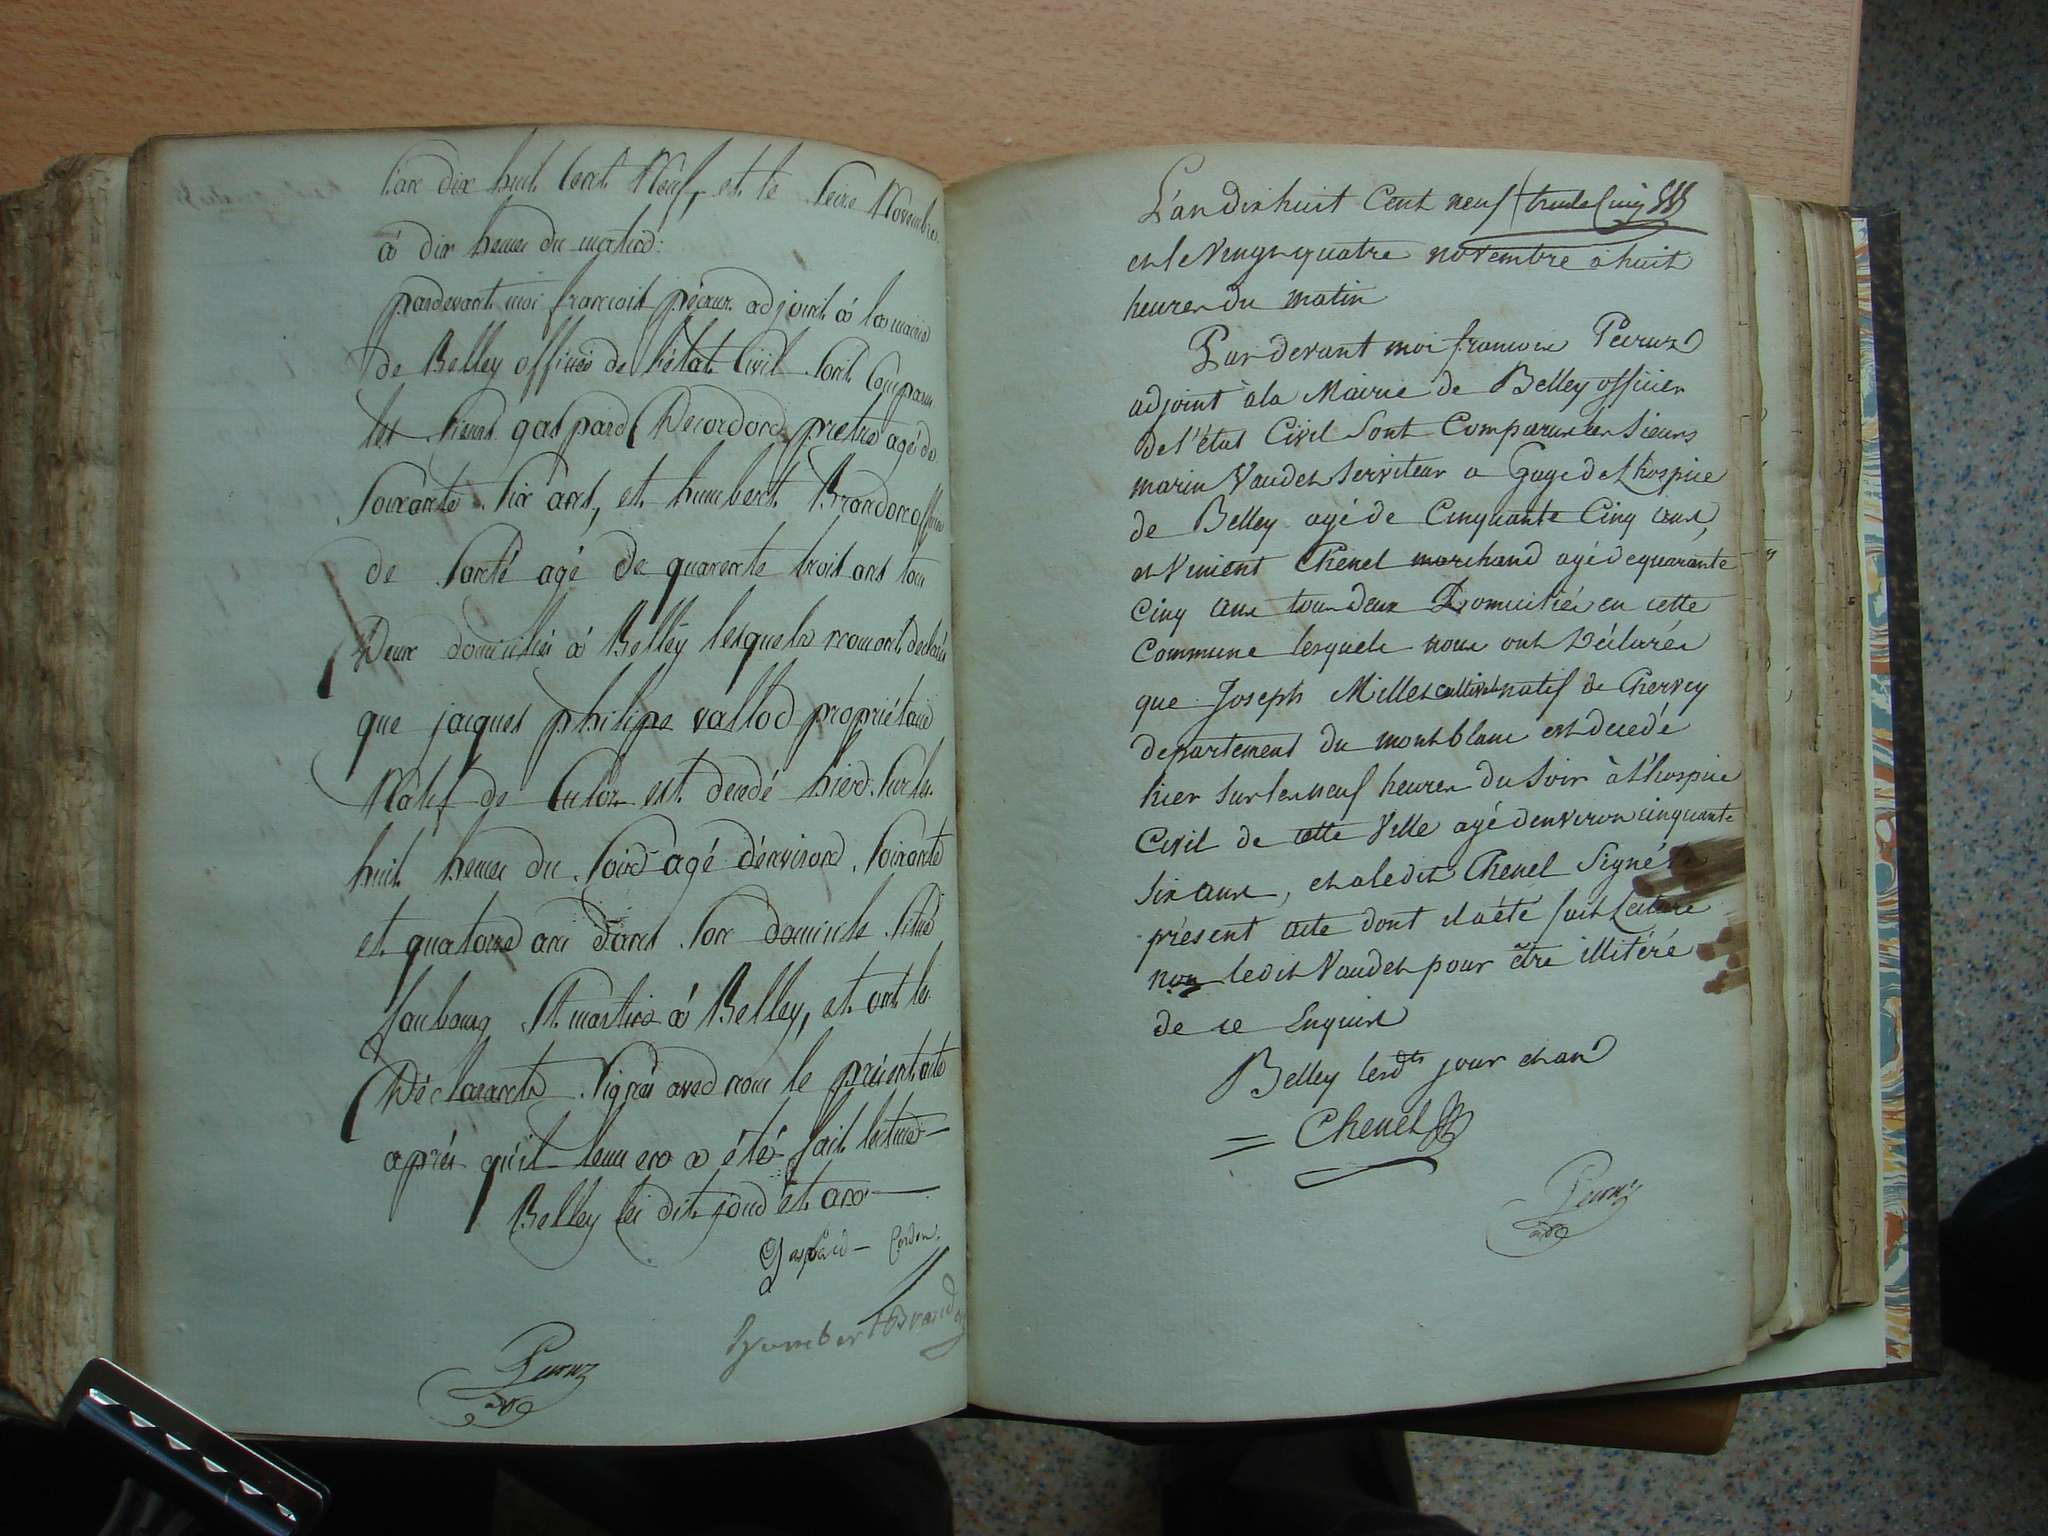 l'an dix huit Cent Neuf, et le Seize Novembre
à dix heures du matin:
pardevant moi françois pécruz adjoint à la mairie
de Belley officier de l'état Civil sont Comparu
les sieurs gaspard Decordon prêtre agé de
Soixante Six ans, et humbert Brandon officier
de santé agé de quarente trois ans tous
Deux domiciliés à Belley lesquels nous ont declaré
que jacques philipe vallod propriétaire
Natif de Culoz est decedé hier sur les
huit heures du soir agé d'environ Soixante
et quatorze ans dans son domicile situé
faubourg St. martin à Belley, et ont les
Déclarants signés avec nous le présent acte
après qu'il leur en a été fait lecture
Belley les dit jour et an
Gaspard Cordon
Humbert Brandon
Pecruz
L'an dix huit Cent neuf trente Cinq
et le Vingt quatre novembre à huit
heures du matin
Pardevant moi francois Pecruz
adjoint à la Mairie de Belley officier
de l'état Civil sont Comparus les Sieurs
marin Vaudet serviteur a Gage de Lhospice
de Belley agé de Cinquante Cinq ans,
et Vincent Chenel marchand agé de quarante
Cinq ans tous deux Domiciliés en cette
Commune lesquels nous ont Déclarés
que Joseph Millet cultivat natif de Chervey
departement du montblanc est decedé
hier sur les neuf heures du soir à l'hospice
Civil de cette Ville agé denviron cinquante
six ans, et a ledit Chenel Signé le
présent acte dont il a été fait Lecture
non ledit Vaudet pour être illitéré
de ce Enquis
Belley les dts jour et an
Chenel
Pecruz